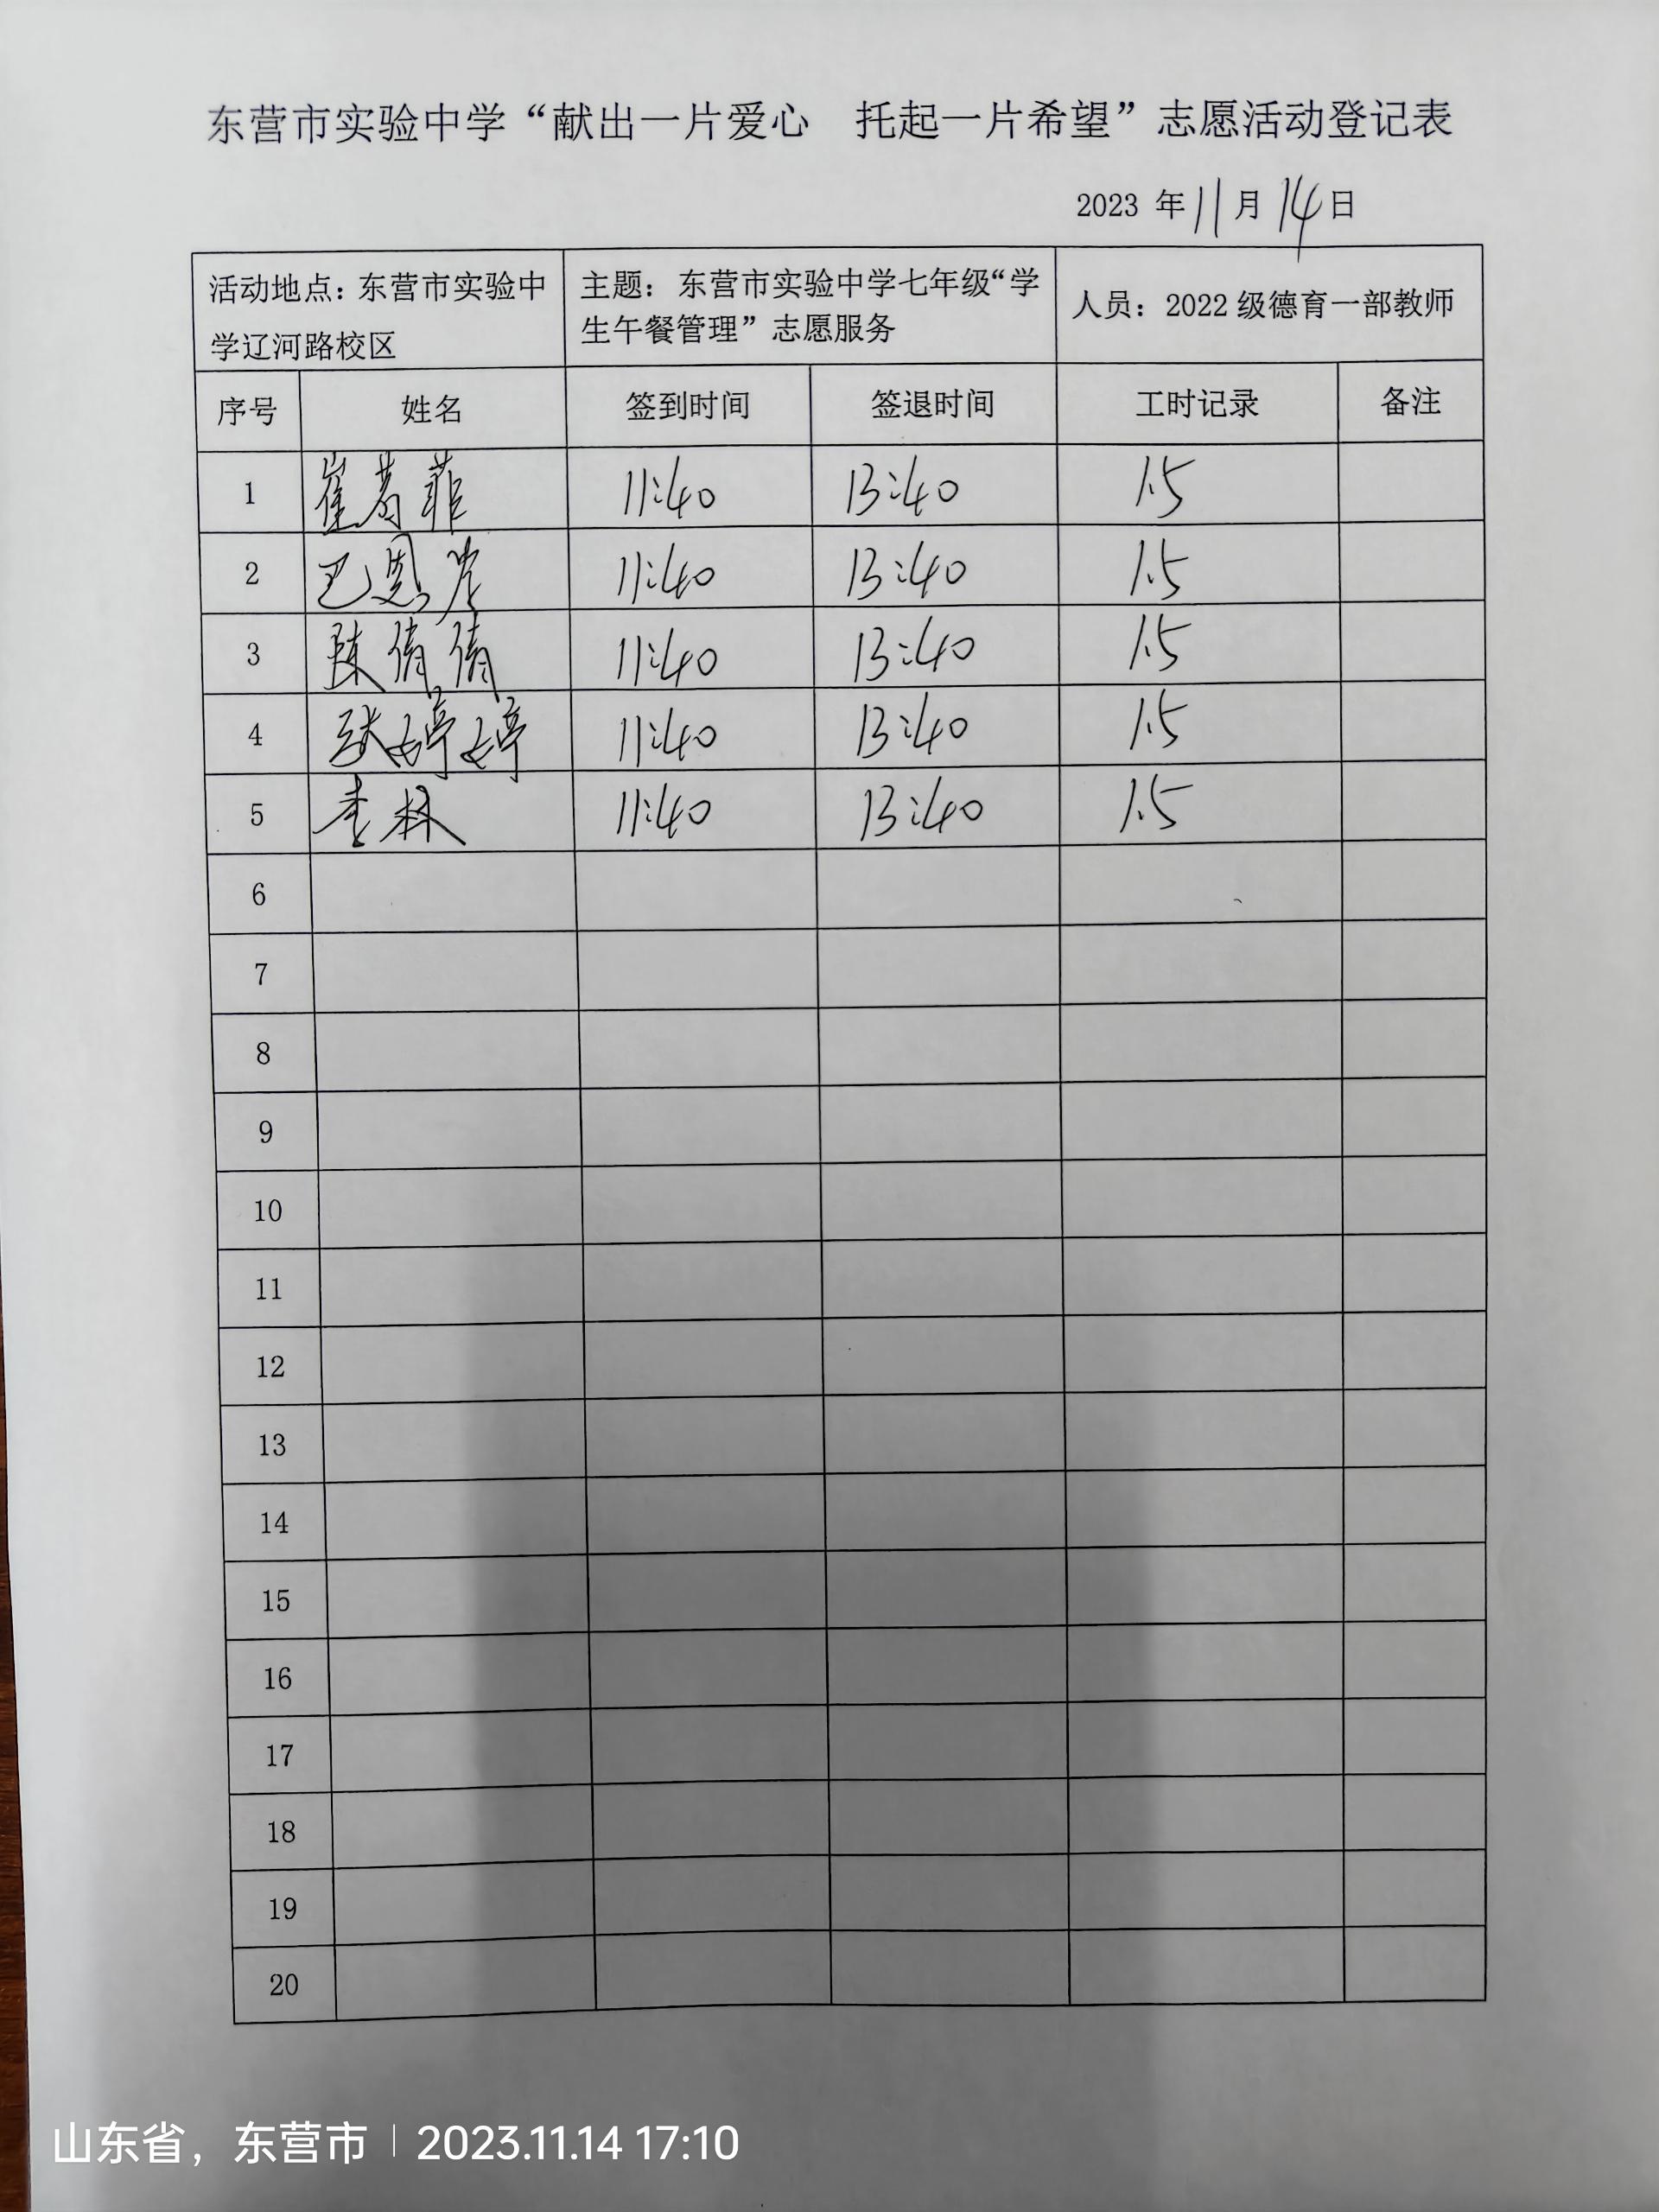 东营市实验中学“献出一片爱心 托起一片希望”志愿活动登记表
2023 年 11 月 14 日
活动地点：东营市实验中
学辽河路校区
主题：东营市实验中学七年级“学
生午餐管理”志愿服务
人员：2022 级德育一部教师
序号 姓名 签到时间 签退时间 工时记录 备注
1 崔 菲 11:40 13:40 1.5
2 巴恩 11:40 13:40 1.5
3 陈倩倩 11:40 13:40 1.5
4 张婷婷 11:40 13:40 1.5
5 李林 11:40 13:40 1.5
6
7
8
9
10
11
12
13
14
15
16
17
18
19
20
山东省，东营市 | 2023.11.14 17:10